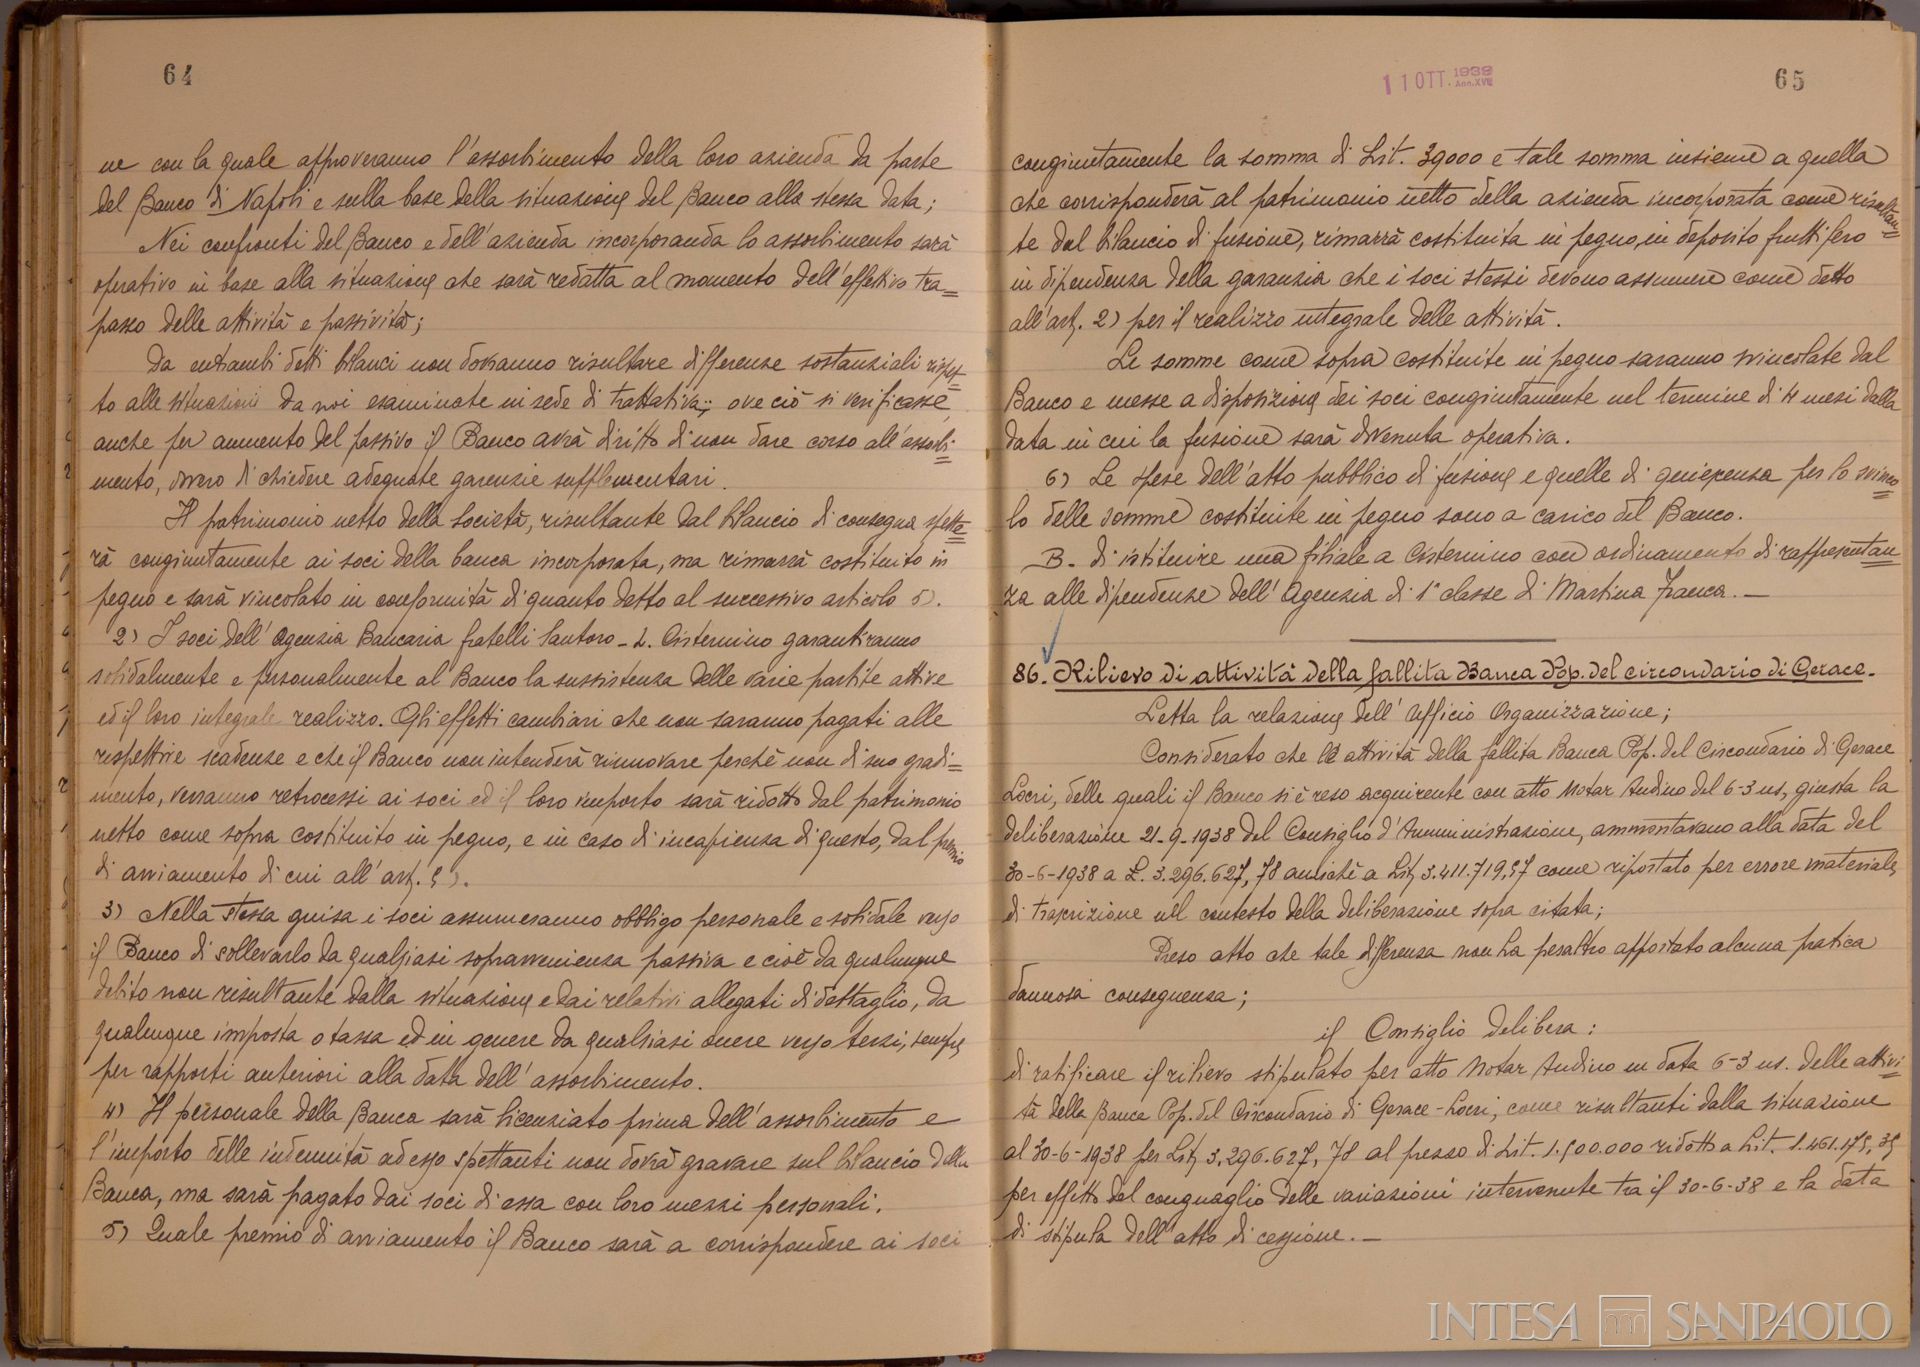 64
ne con la quale approveranno l'assorbimento della loro azienda da parte
del Banco di Napoli e sulla base della situazione del Banco alla stessa data;
Nei confronti del Banco e dell'azienda incorporanda lo assorbimento sarà
operativo in base alla situazione che sarà redatta al momento dell'effettivo tra=
passo delle attività e passività;
Da entrambi detti bilanci non dovranno risultare differenze sostanziali rispet=
to alle situazioni da noi esaminate in sede di trattativa; ove ciò si verificasse,
anche per aumento del passivo il Banco avrà diritto di non dare corso all'assorbi=
mento, ovvero di chiedere adeguate garenzie supplementari.
Il patrimonio netto della Società, risultante dal bilancio di consegna spette=
rà congiuntamente ai soci della banca incorporata, ma rimarrà costituito in
pegno e sarà vincolato in conformità di quanto detto al successivo articolo 5).
2) I soci dell'Agenzia Bancaria fratelli Santoro - L. Cisternino garantiranno
solidalmente e personalmente al Banco la sussistenza delle varie partite attive
ed il loro integrale realizzo. Gli effetti cambiari che non saranno pagati alle
rispettive scadenze e che il Banco non intenderà rinnovare perchè non di suo gradi=
mento, verranno retrocessi ai soci ed il loro importo sarà ridotto dal patrimonio
netto come sopra costituito in pegno, e in caso di incapienza di questo, dal premio
di avviamento di cui all'art. 5).
3) Nella stessa guisa i soci assumeranno obbligo personale e solidale verso
il Banco di sollevarlo da qualsiasi sopravvenienza passiva e cioè da qualunque
debito non risultante dalla situazione e dai relativi allegati di dettaglio, da
qualunque imposta o tassa ed in genere da qualsiasi onere verso terzi, sempre
per rapporti anteriori alla data dell'assorbimento.
4) Il personale della Banca sarà licenziato prima dell'assorbimento e
l'importo delle indennità ad esso spettanti non dovrà gravare sul bilancio della
Banca, ma sarà pagato dai soci di essa con loro mezzi personali.
5) Quale premio di avviamento il Banco sarà a corrispondere ai soci
11 OTT. 1939
Ann. XVII
65
congiuntamente la somma di Lit. 39000 e tale somma insieme a quella
che corrisponderà al patrimonio netto della azienda incorporata come risultan=
te dal bilancio di fusione, rimarrà costituita in pegno, in deposito fruttifero
in dipendenza della garanzia che i soci stessi devono assumere come detto
all'art. 2) per il realizzo integrale delle attività.
Le somme come sopra costituite in pegno saranno svincolate dal
Banco e messe a disposizione dei soci congiuntamente nel termine di mesi dalla
data in cui la fusione sarà divenuta operativa.
6) Le spese dell'atto pubblico di fusione e quelle di quiescenza per lo svinco=
lo delle somme costituite in pegno sono a carico del Banco.
B. di istituire una filiale a Cisternino con ordinamento di rappresentan=
za alle dipendenze dell'Agenzia di 1ª classe di Martina Franca.—
86. Rilievo di attività della fallita Banca Pop. del circondario di Gerace.
Letta la relazione dell'Ufficio Organizzazione;
Considerato che le attività della fallita Banca Pop. del Circondario di Gerace
Locri, delle quali il Banco si è reso acquirente con atto Notar Audino del 6-3 us, giusta la
deliberazione 21-9-1938 del Consiglio d'Amministrazione, ammontavano alla data del
30-6-1938 a L. 3.296.627,78 anzichè a Lit. 3.411.719,57 come riportato per errore materiale
di trascrizione nel contesto della deliberazione sopra citata;
Preso atto che tale differenza non ha peraltro apportato alcuna pratica
dannosa conseguenza;
il Consiglio delibera:
di ratificare il rilievo stipulato per atto Notar Audino in data 6-3 us. delle attivi=
tà della Banca Pop. del Circondario di Gerace-Locri, come risultanti dalla situazione
al 30-6-1938 per Lit. 3.296.627,78 al prezzo di Lit. 1.500.000 ridotto a Lit. 1.461.175,35
per effetto del conguaglio delle variazioni intervenute tra il 30-6-38 e la data
di stipula dell'atto di cessione.—
INTESA SANPAOLO